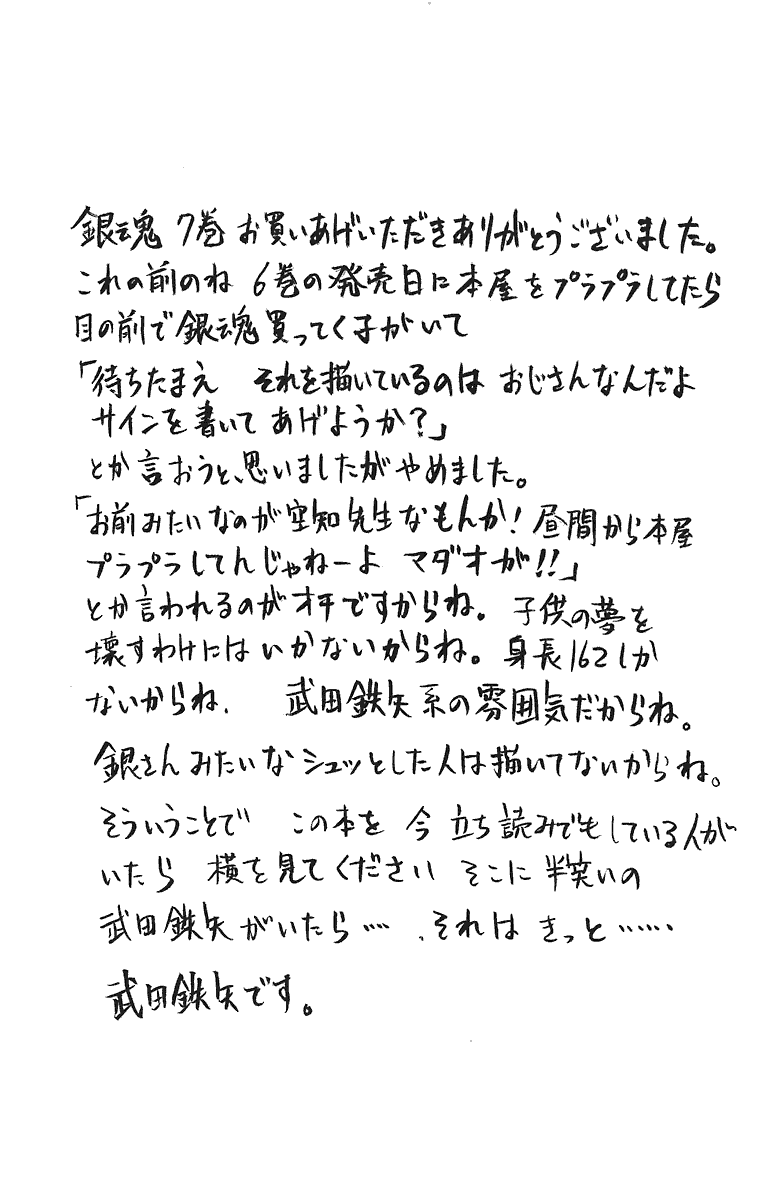 銀魂 7巻 お買いあげいただきありがとうございました。
これの前のね 6巻の発売日に本屋をプラプラしてたら
目の前で銀魂買ってく子がいて
「待ちたまえ それを描いているのは おじさんなんだよ
サインを書いて あげようか?」
とか言おうと、思いましたがやめました。
「お前みたいなのが空知先生なもんか!昼間から本屋
プラプラしてんじゃねーよ マダオが!!」
とか言われるのがオチですからね。子供の夢を
壊すわけにはいかないからね。身長162しか
ないからね. 武田鉄矢系の雰囲気だからね。
銀さんみたいなシュッとした人は描いてないからね。
そういうことで この本を 今 立ち読みでもしている人が
いたら 横を見てください そこに半笑いの
武田鉄矢がいたら…. それは きっと……
武田鉄矢です。